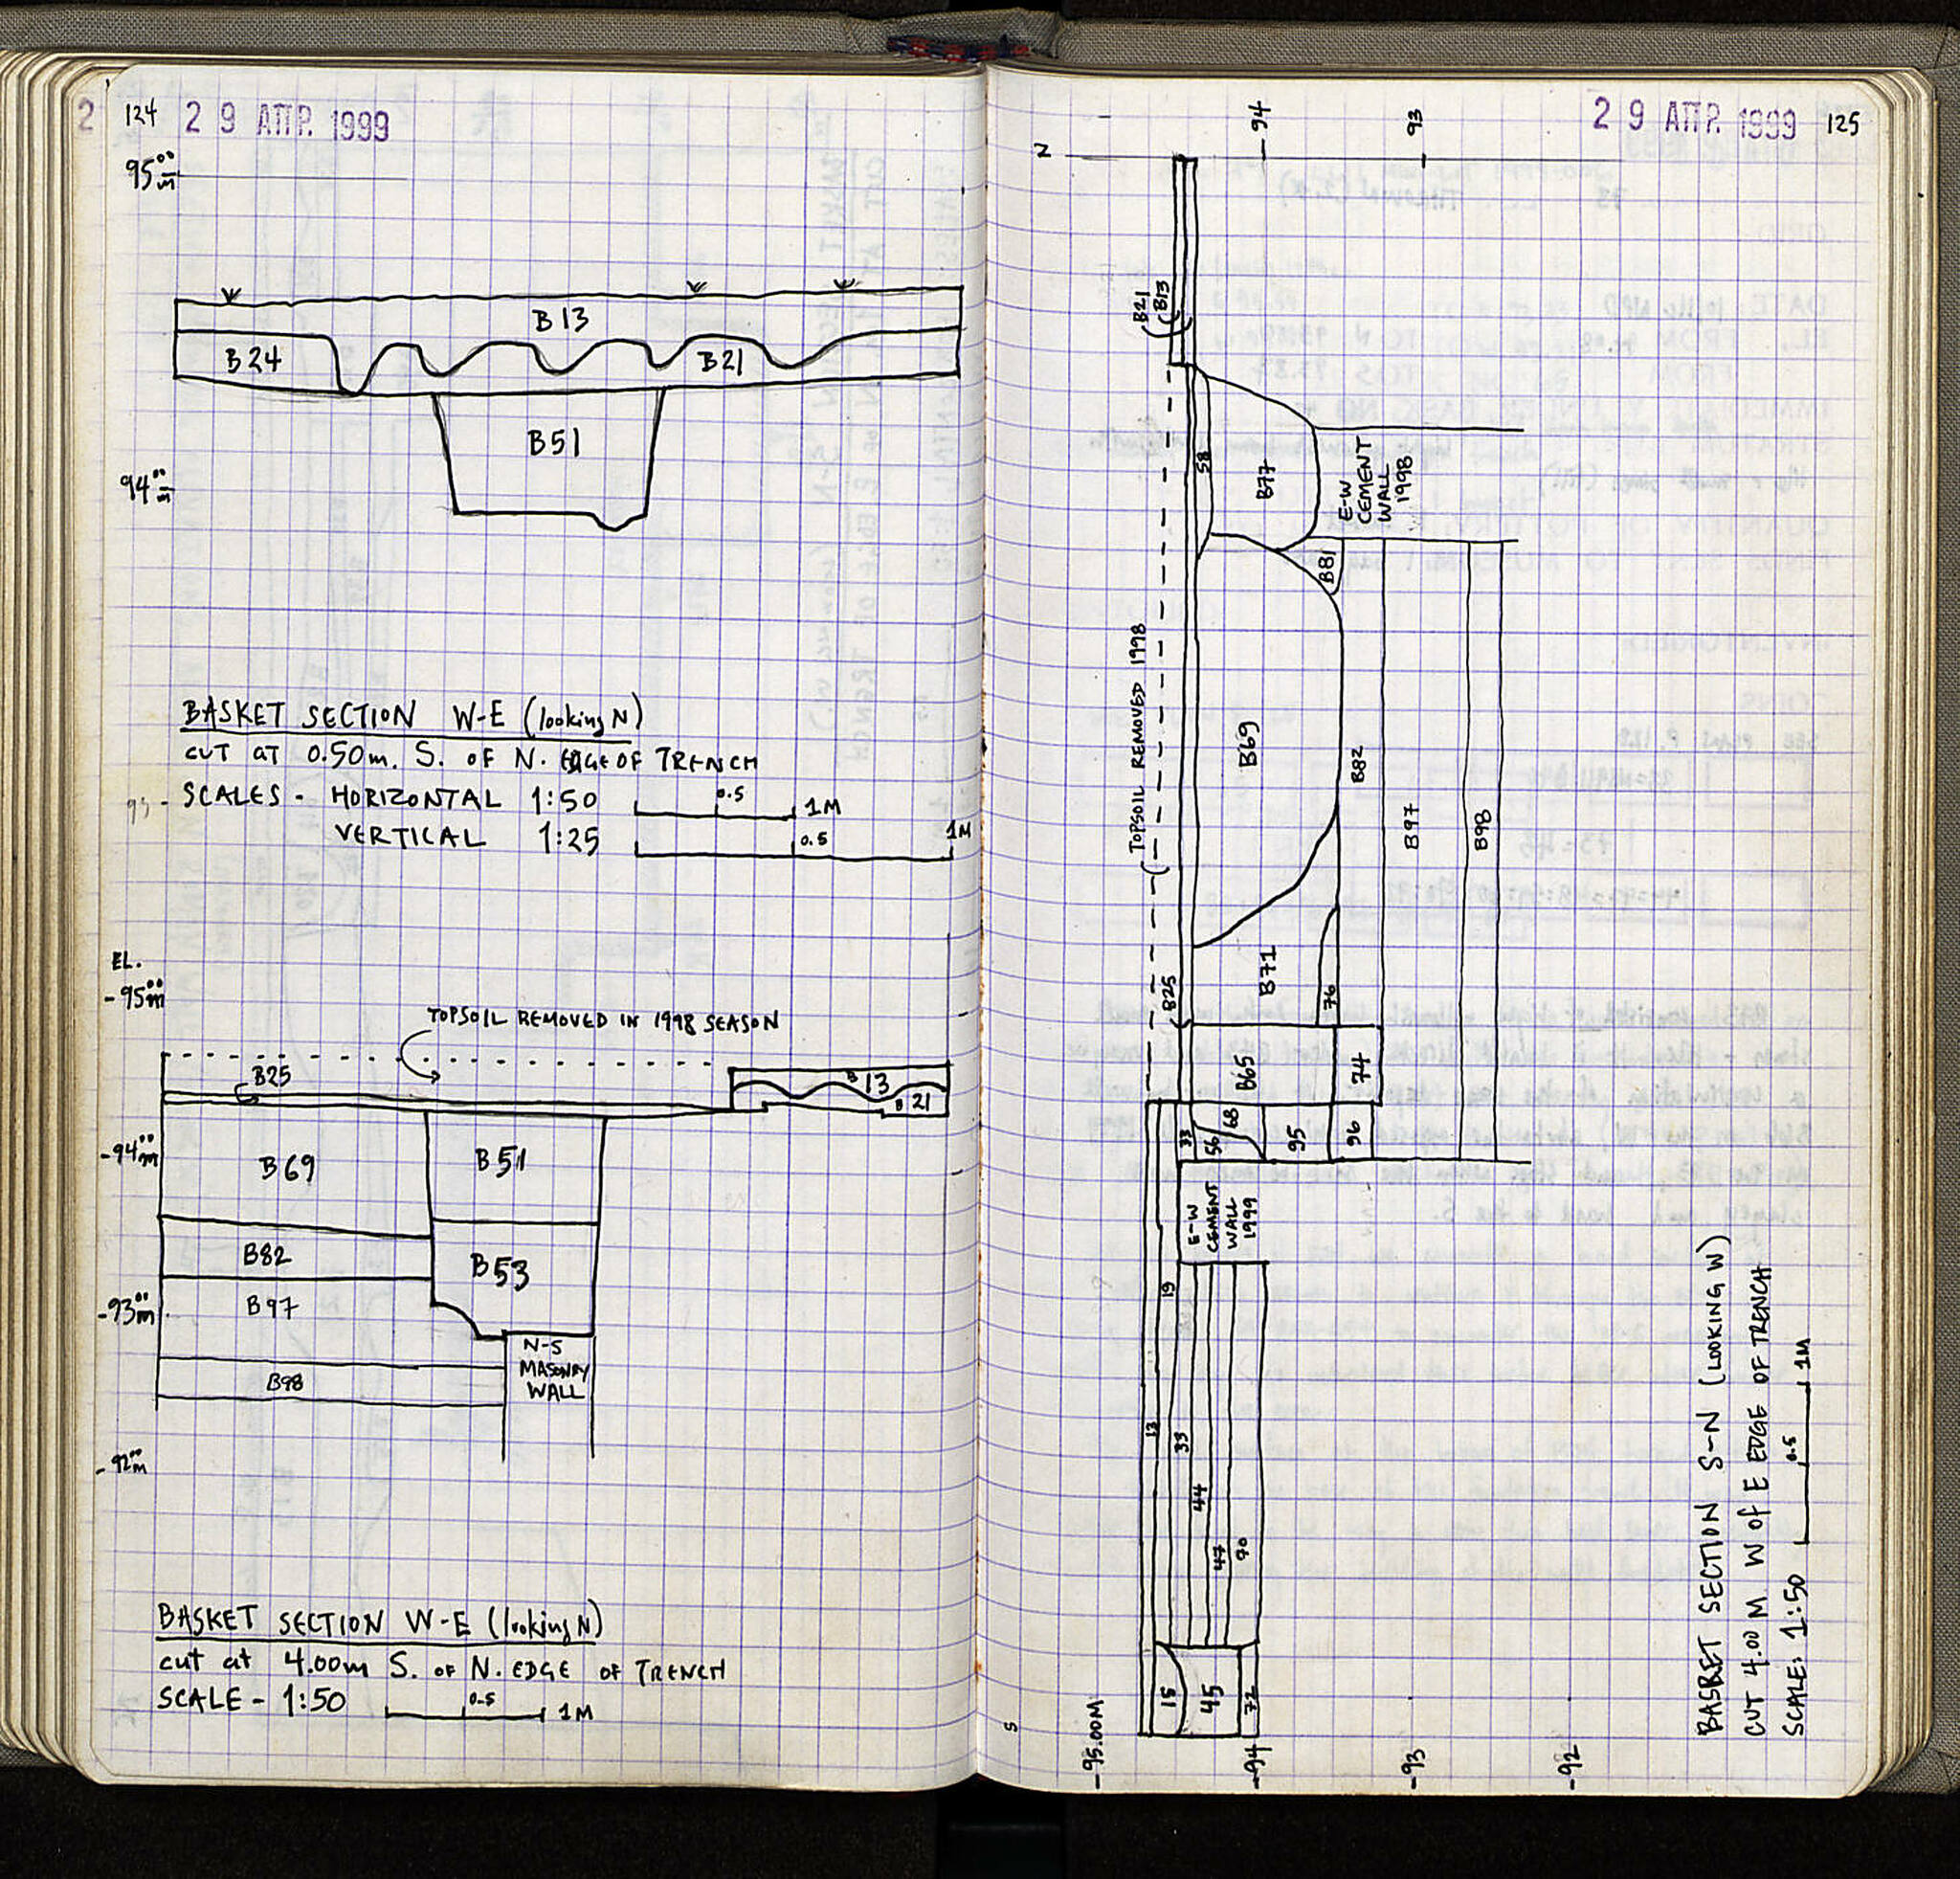 2 124 29 ΑΠΡ. 1999
95⁰⁰m
B13
B24 B21
B51
94⁰⁰m
BASKET SECTION W-E (looking N)
CUT AT 0.50m. S. OF N. EDGE OF TRENCH
SCALES - HORIZONTAL 1:50 0.5 1M
VERTICAL 1:25 0.5 1M
EL.
-95⁰⁰m
TOPSOIL REMOVED IN 1998 SEASON
B25
B13
B21
-94⁰⁰m
B69 B51
B82 B53
-93⁰⁰m
B97
N-S
MASONRY
WALL
B98
-92⁰⁰m
BASKET SECTION W-E (looking N)
cut at 4.00m S. OF N. EDGE OF TRENCH
SCALE - 1:50 0.5 1M
29 ΑΠΡ. 1999 125
N
-94
93
B21
B13
58
B77
E-W
CEMENT
WALL
1998
B81
TOPSOIL REMOVED 1998
B69
B82
B97
B98
B25
B71
76
B65
74
33
56
68
95
96
E-W
CEMENT
WALL
1999
19
13
33
44
47
90
15
45
72
S
-95.00M
-94
-93
-92
BASKET SECTION S-N (LOOKING W)
CUT 4.00 M W of E EDGE OF TRENCH
SCALE: 1:50 0.5 1M